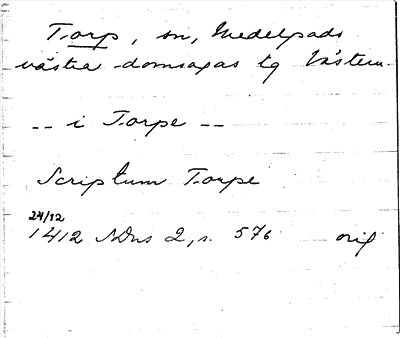 Torp, sn, Medelpads
västra domsagas tg Västern.
-- i Torpe --
Scriptum Torpe
24/12
1412 SDns 2, s. 576 orig